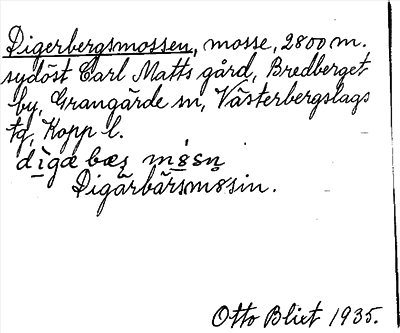 Digerbergsmossen, mosse, 2800 m.
sydöst Carl Matts gård, Bredberget
by, Grangärde sn, Västerbergslags
tg, Kopp l.
dìgæ bæș
Digärbärsmosin.
Otto Blixt 1935.